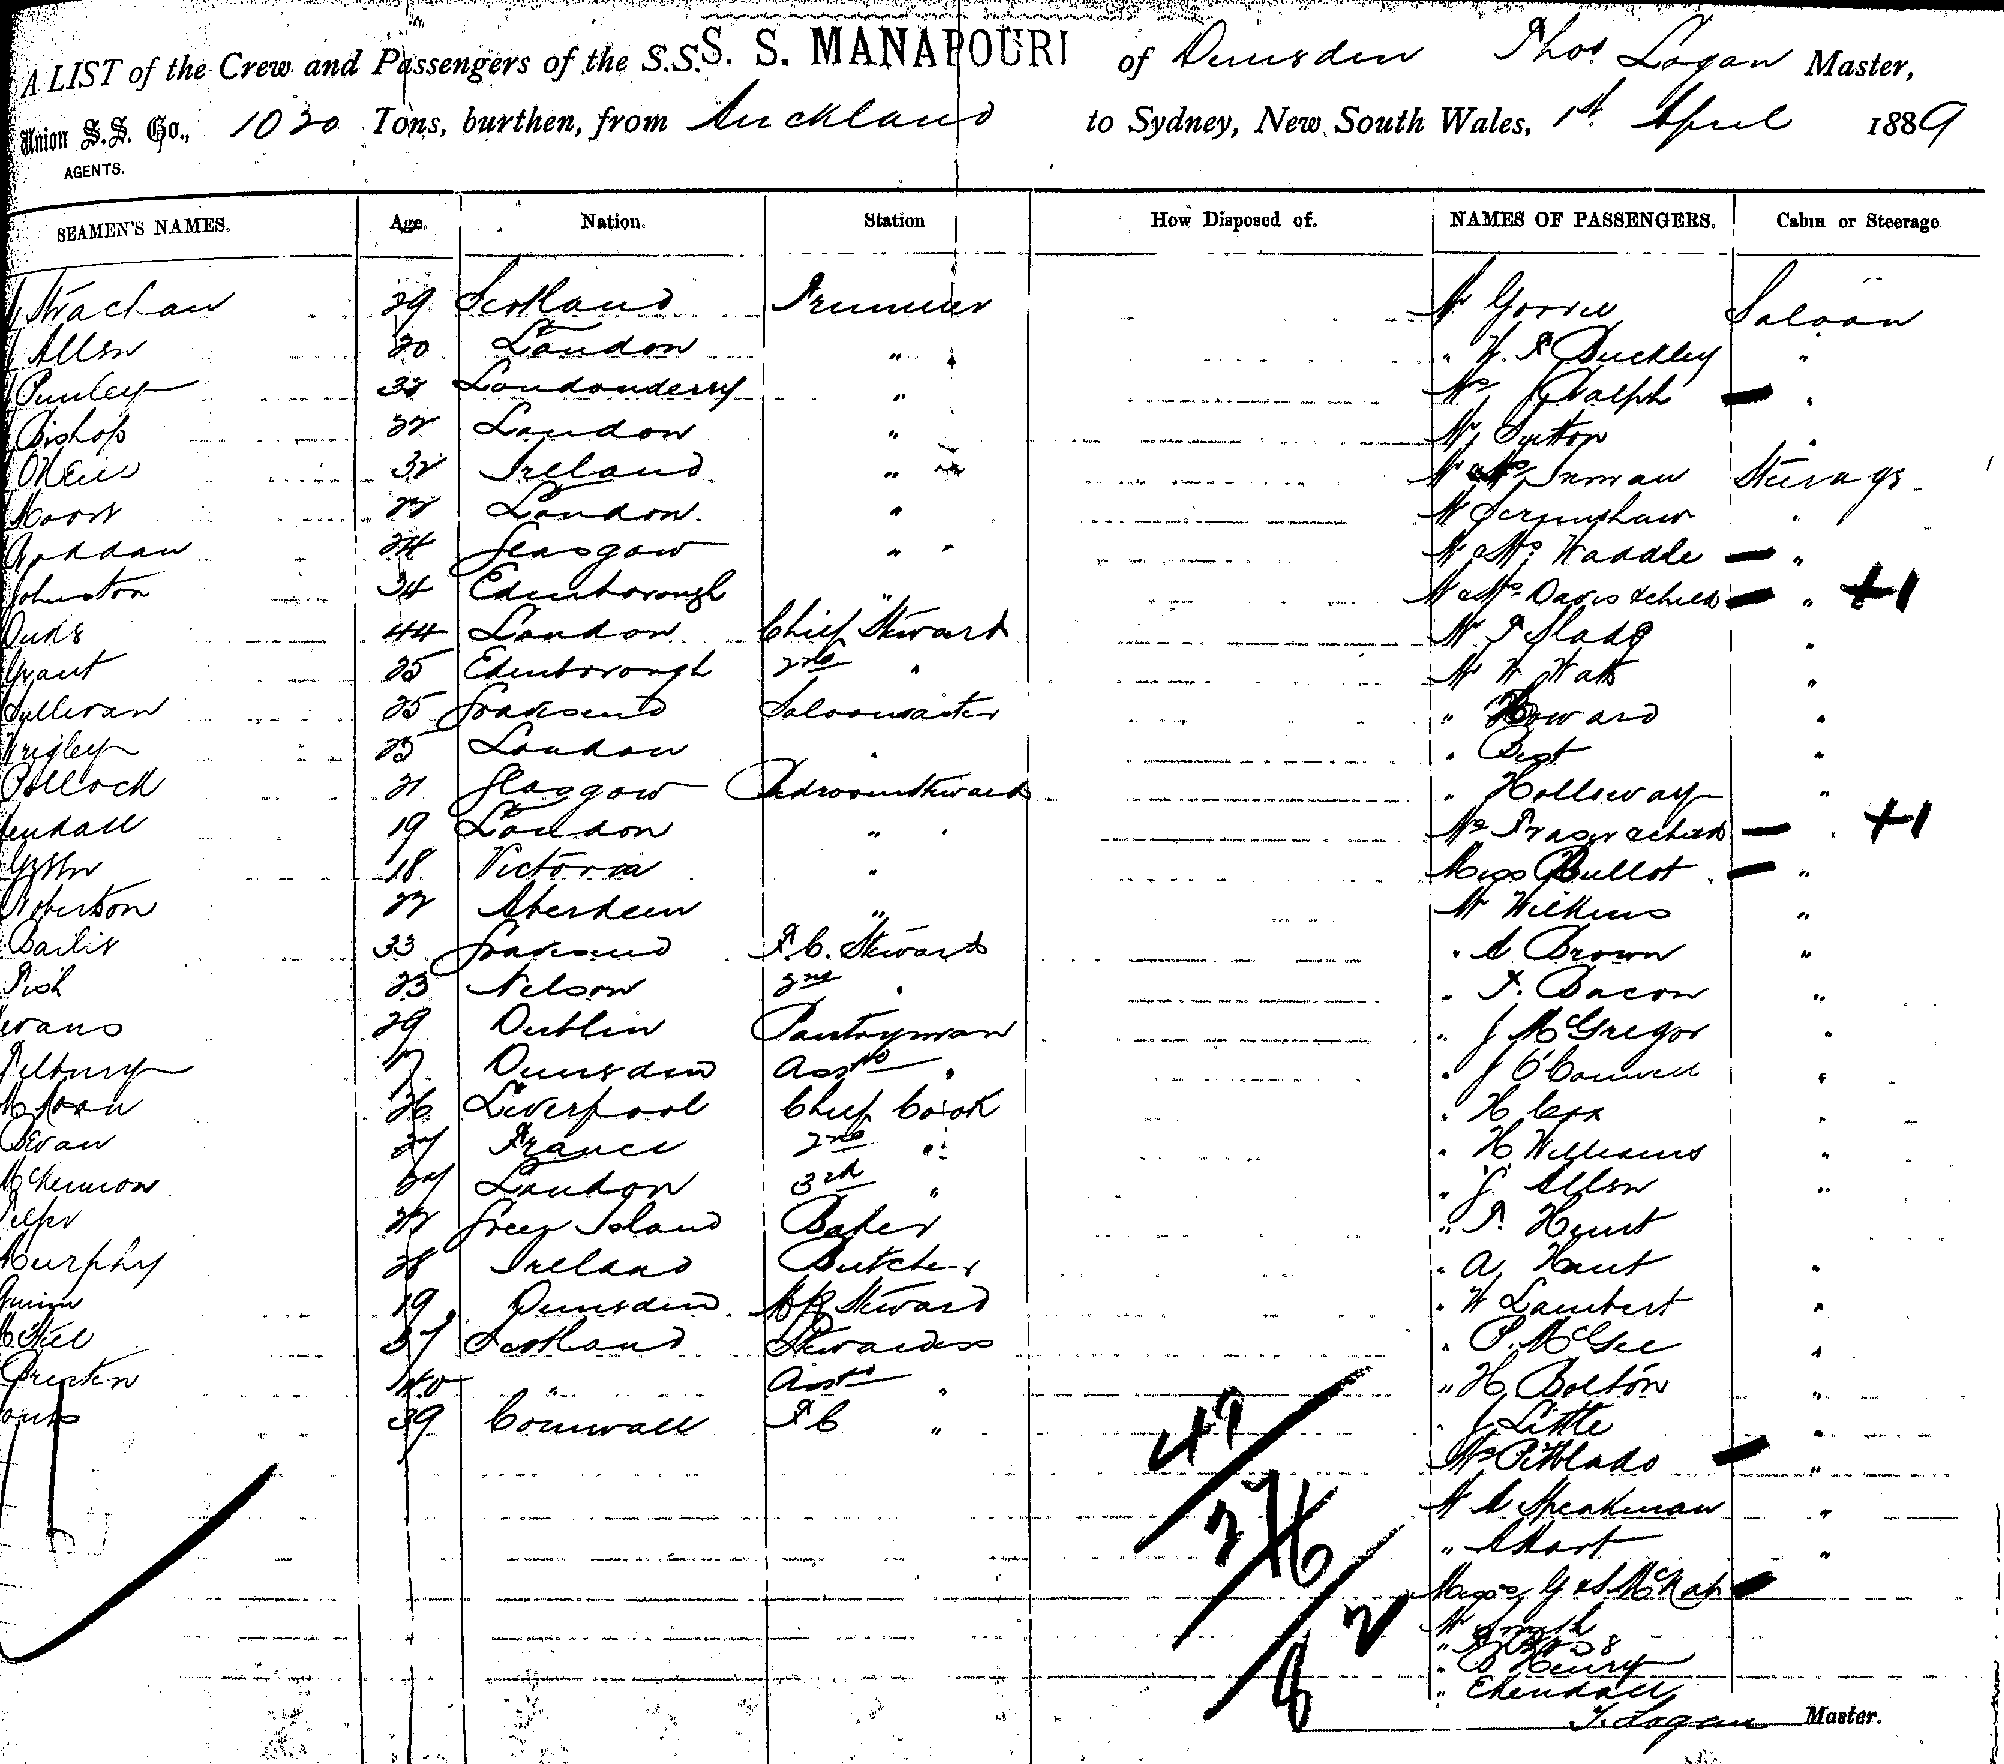 A LIST of the Crew and Passengers of the S.S. S. S. MANAPOURI of Dunedin Thos Logan Master,
Union S.S. Co., 1020 Tons, burthen, from Auckland to Sydney, New South Wales, 1st April 1889
AGENTS.
SEAMEN'S NAMES. Age. Nation. Station How Disposed of. NAMES OF PASSENGERS. Cabin or Steerage
Strachan 29 Scotland Trimmer Mr Saloon
Allen 20 London " " Buckley "
32 Londonderry " Mrs Ralph "
Bishop 22 London " Mr Sutton "
ONeill 32 Ireland " Mr & Mrs Inman Steerage
22 London " Mr Scrimshaw "
24 Glasgow " Mr & Mrs Waddle "
Johnston 34 Edinborough " Mr & Mrs Davis & child " +1
44 London Chief Steward Mr "
Grant 25 Edinborough 2nd " Mr W Watts "
Sullivan 25 Gravesend Saloonwaiter " Howard "
Wrigley 25 London " " Best "
Pollock 21 Glasgow Bedroomsteward " Holloway "
19 London " Mrs Fraser & child " +1
18 Victoria " Miss Bullot "
Robertson 22 Aberdeen " Mr Wilkins "
33 Gravesend F.C. Steward " A Brown "
23 Nelson 2nd " " F. Bacon "
Evans 29 Dublin Pantryman " J McGregor "
17 Dunedin Asst " " J O'Connell "
26 Liverpool Chief Cook " H Cox "
27 France 2nd " " H Williams "
McKinnon 27 London 3rd " " J Allen "
22 Green Island Baker " F. Hunt "
Murphy 28 Ireland Butcher " A Hunt "
19 Dunedin Steward " W Lambert "
37 Scotland Stewardess " P. McGee "
40 " Asst " " H Bolton "
39 Cornwall F C " " J Little "
Mrs Pitblado "
47 Mr A Speakman "
" A Hart "
Misses G & S McNab
2 Mr Smith
"
8 " Henry
"
T. Logan Master.